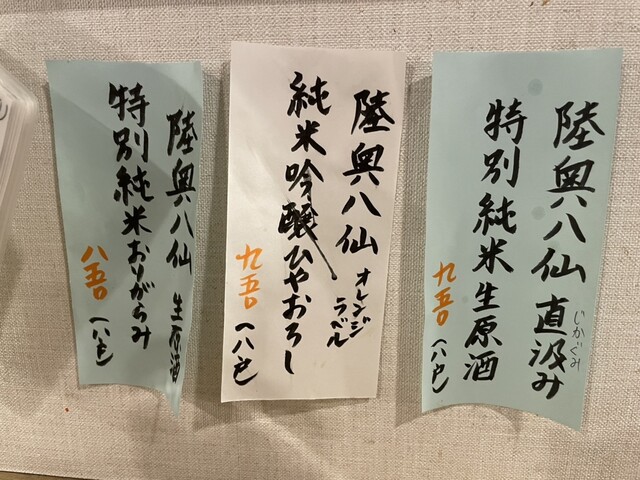 陸奥八仙 直汲み
じかぐみ
特別純米生原酒
九五〇
(八戸)
陸奥八仙 オレンジ
ラベル
純米吟醸ひやおろし
九五〇
(八戸)
陸奥八仙 生原酒
特別純米おりがらみ
八五〇
(八戸)